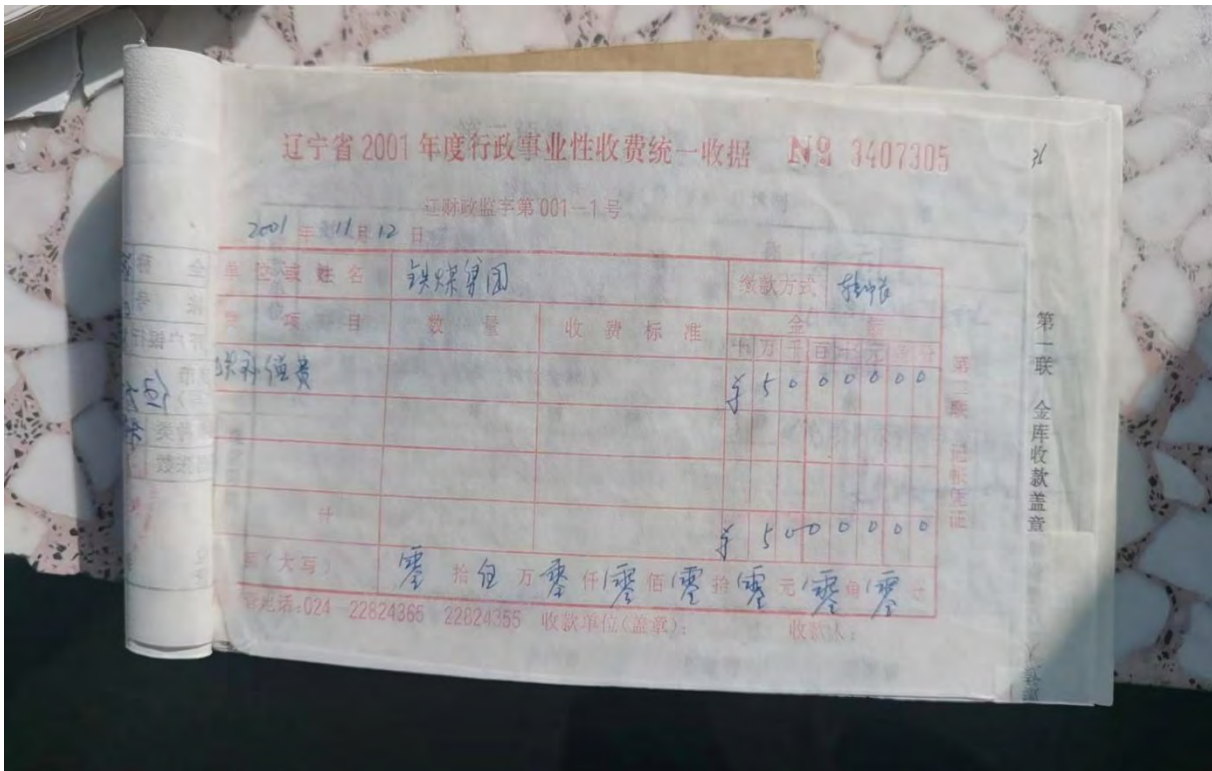 辽宁省2001年度行政事业性收费统一收据 № 3407305
辽财政监字第001—1号
2001年11月12日
单位或姓名 铁煤集团 缴款方式 转帐
项目 数量 收费标准 金额
十万千百十元角分
补偿费 ¥5000000
计 ¥5000000
(大写) 零拾伍万零仟零佰零拾零元零角零分
电话:024 22824365 22824355 收款单位(盖章): 收款人:
第二联 记帐凭证
第一联 金库收款盖章